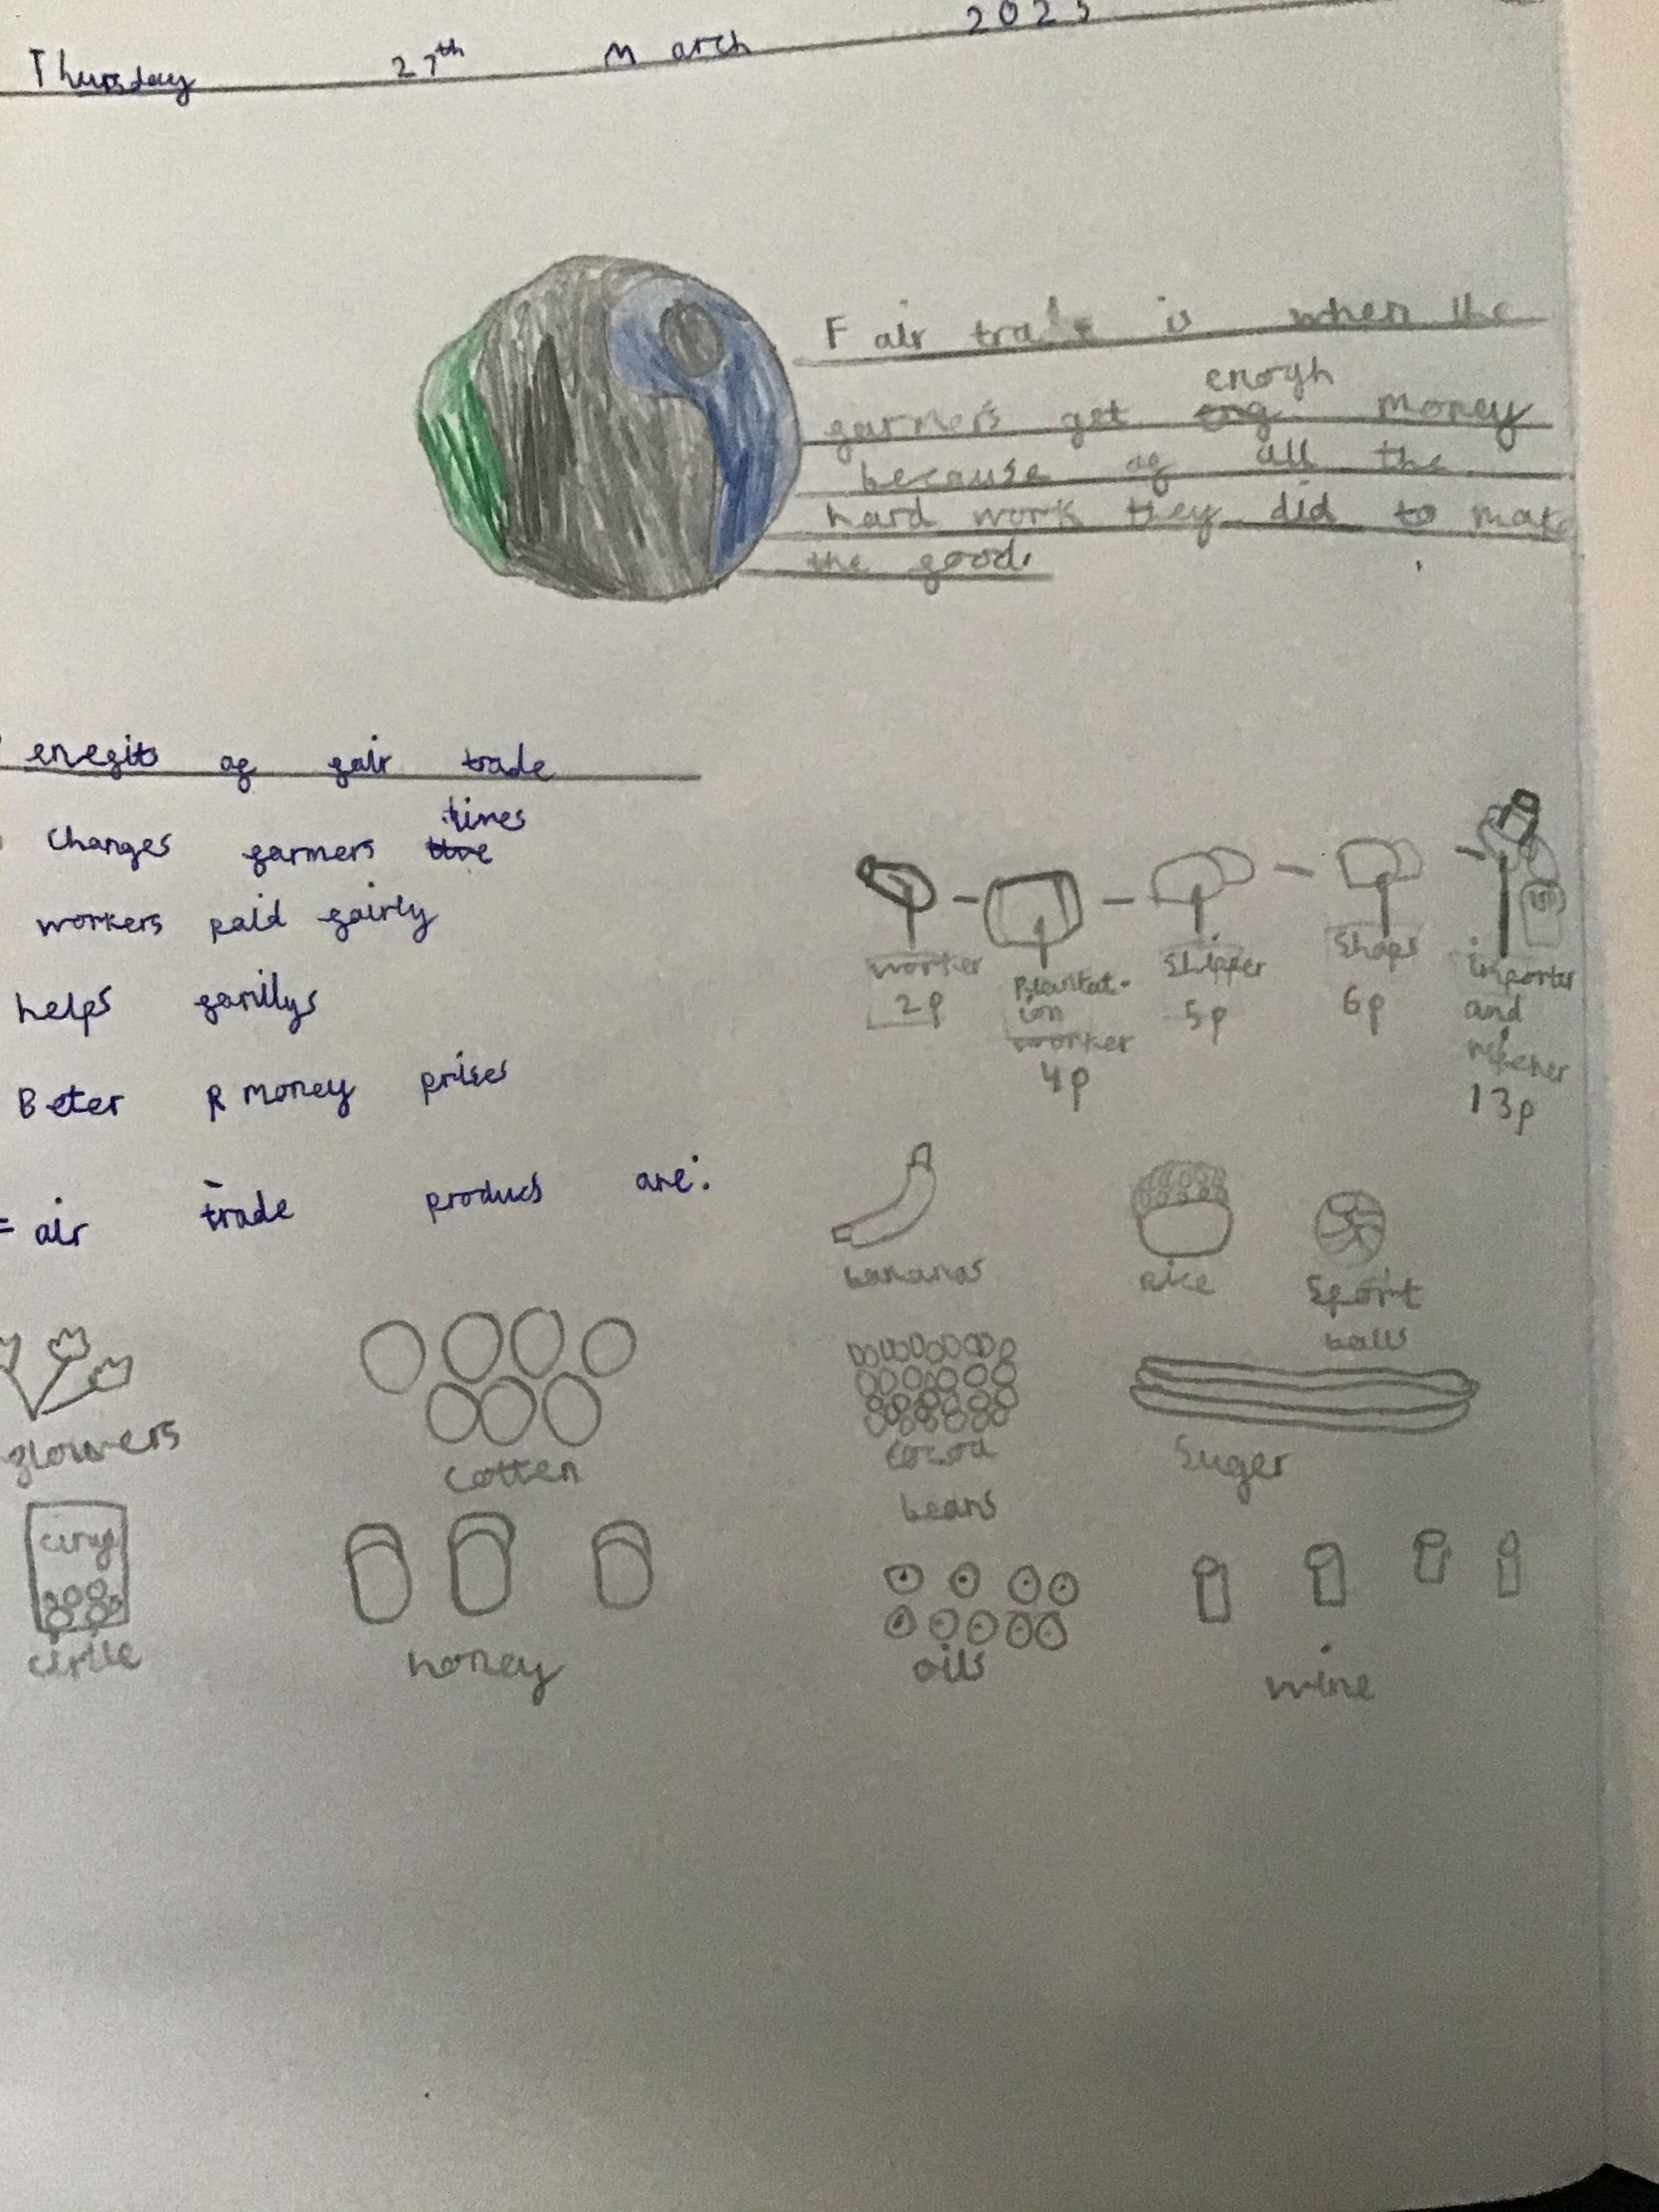 Thursday 27th March 2025
Fair trade is when the
farmers get enogh money
because of all the
hard work they did to make
the good.
enefits of fair trade
Changes farmers lives
workers paid fairly
helps familys
Beter money prises
air trade producs are:
worker
2p
Plantat-
ion
worker
4p
Shipper
5p
Shops
6p
importer
and
13p
bananas
Rice
Sport
balls
flowers
cotten
cocoa
beans
Suger
honey
oils
wine